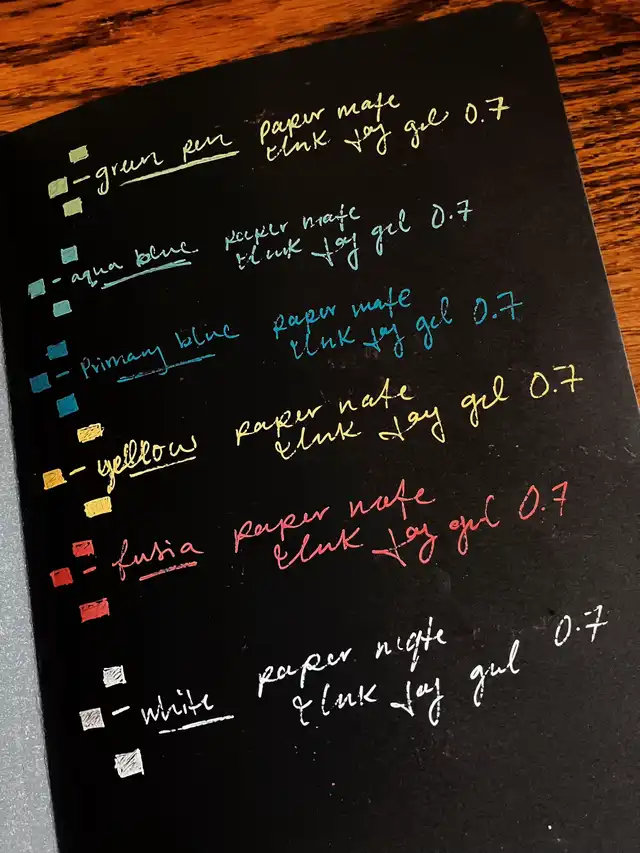 - green pen paper mate
Ink Joy gel 0.7
- aqua blue paper mate
Ink Joy gel 0.7
- Primary blue paper mate
Ink Joy gel 0.7
- yellow paper mate
Ink Joy gel 0.7
- fusia paper mate
Ink Joy gel 0.7
- white paper mate
Ink Joy gel 0.7